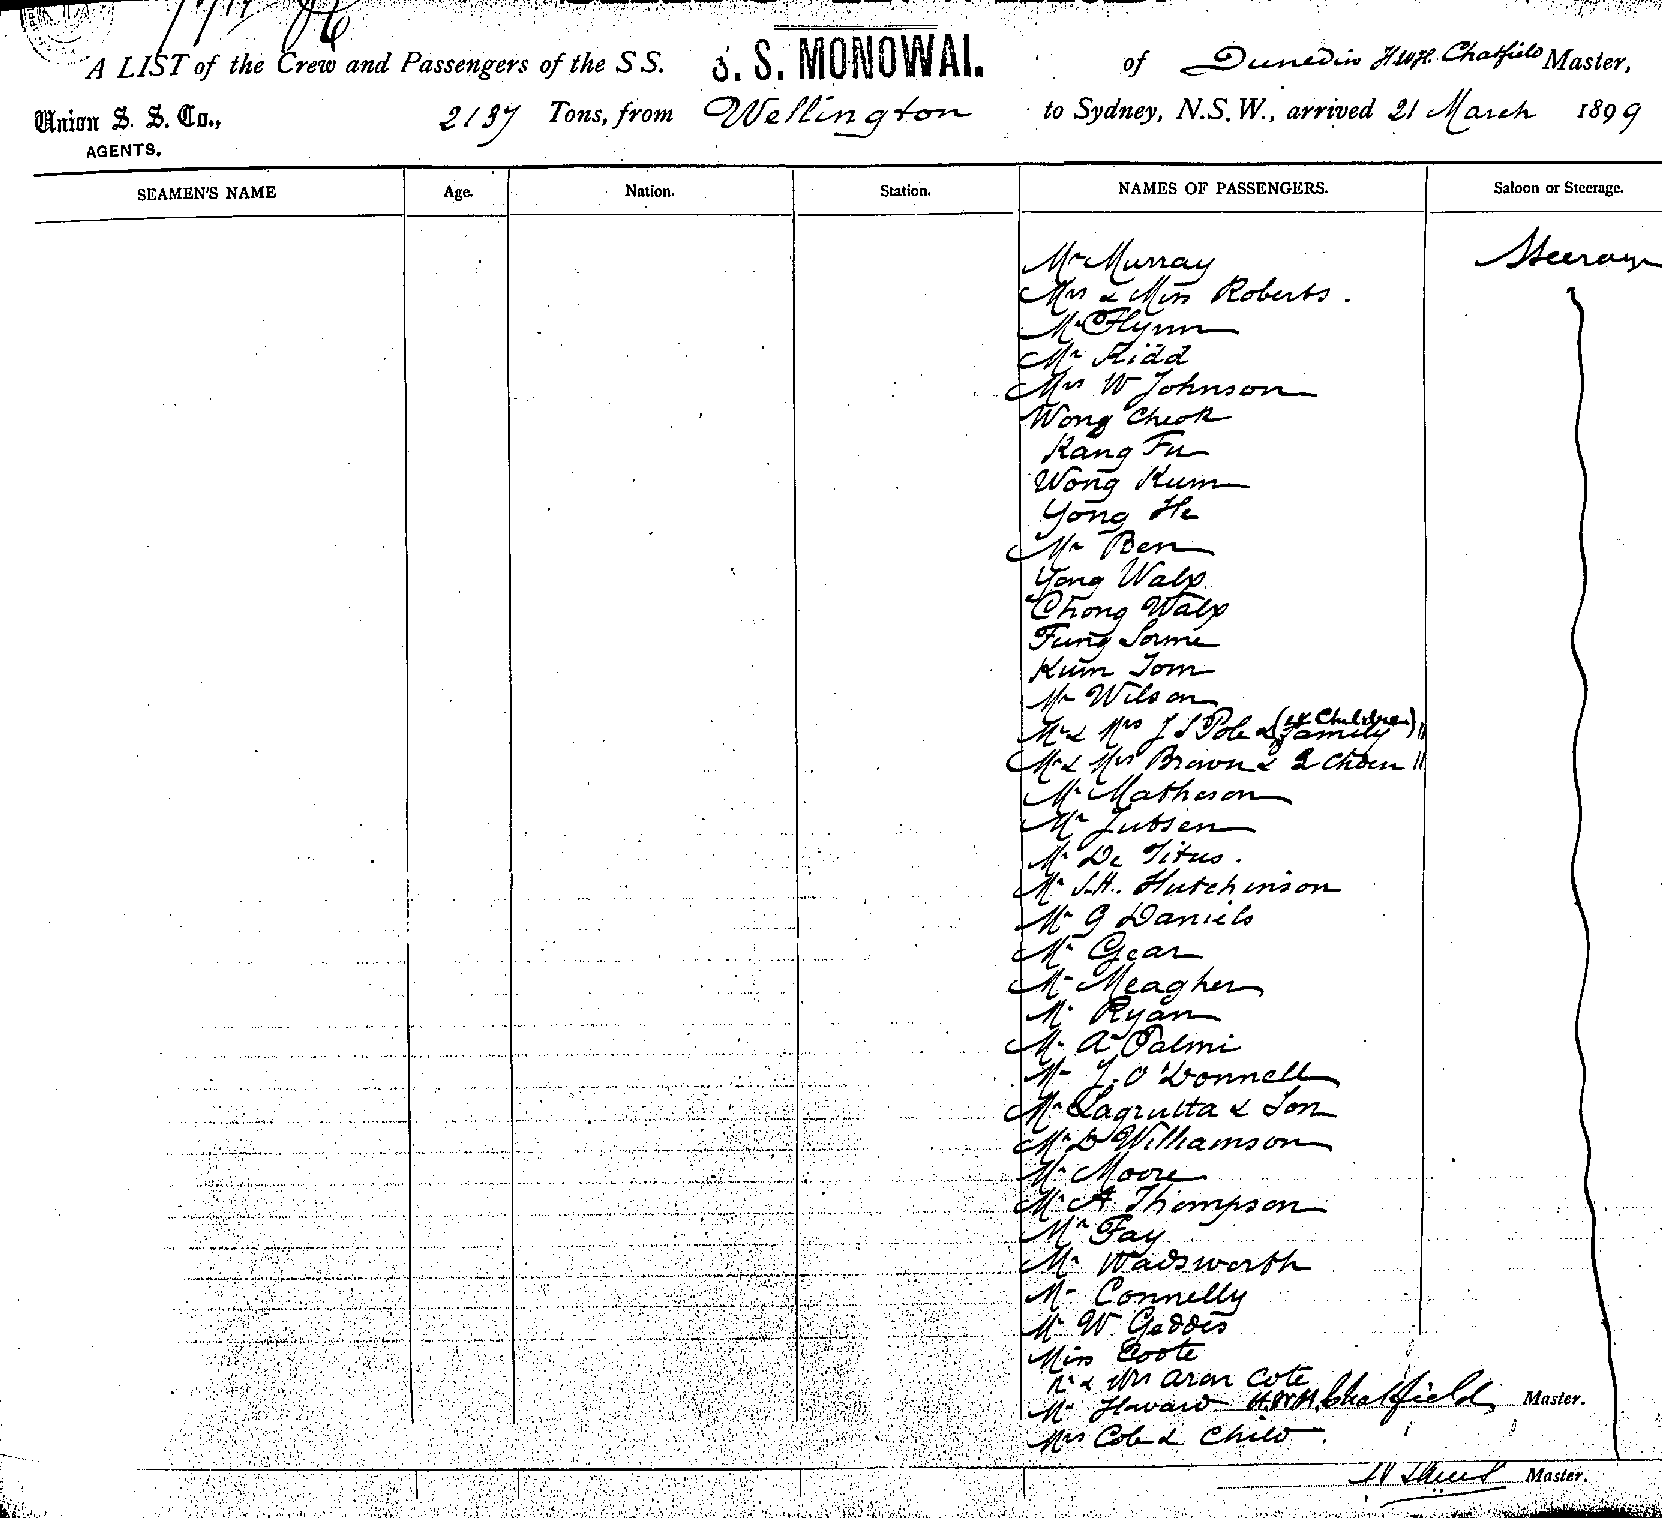 A LIST of the Crew and Passengers of the S S. S. S. MONOWAI. of Dunedin H.W.H. Chatfield Master,
Union S. S. Co., 2137 Tons, from Wellington to Sydney, N.S.W., arrived 21 March 1899
AGENTS.
SEAMEN'S NAME Age. Nation. Station. NAMES OF PASSENGERS. Saloon or Steerage.
Mr Murray Steerage
Mrs & Miss Roberts.
Mr Flynn
Mr Kidd
Mrs W Johnson
Wong Cheok
Kang Fu
Wong Kum
Yong He
Mr Ben
Yong Walp
Chong Walp
Fung Lorme
Kum Tom
Mr Wilson
Mr & Mrs J S Pole & family (4 Children) "
Mr & Mrs Brown & 2 Chden "
Mr Matheson
Mr Jutsen
Mr De Titus.
Mr S.H. Hutchinson
Mr G Daniels
Mr Gear
Mr Meagher
Mr Ryan
Mr A Palmi
Mr J. O'Donnell
Mr Lagrutta & Son
Mr D Williamson
Mr Moore
Mr A Thompson
Mr Fay
Mr Wadsworth
Mr Connelly
Mr W Geddis
Miss Coote
Mr & Mrs Aron Cote
Mr Howard H.W.H. Chatfield Master.
Mrs Cole & Child.
Master.